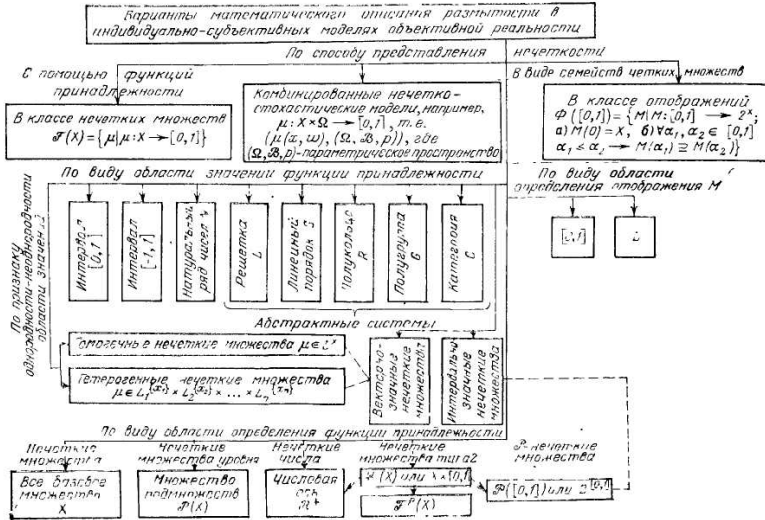 Варианты математического описания размытости в
индивидуально-субъективных моделях объективной реальности
По способу представления нечеткости
С помощью функций
принадлежности
В классе нечетких множеств
𝓕(X)={μ|μ:X→[0,1]}
Комбинированные нечетко-
стохастические модели, например,
μ: X×Ω → [0,1], т.е.
(μ(x,w), (Ω,ℬ,p)), где
(Ω,ℬ,p)-параметрическое пространство
В виде семейств четких множеств
В классе отображений
Φ([0,1])={M|M:[0,1] → 2ˣ;
а) M(0)=X, б)∀α₁, α₂ ∈ [0,1]
α₁ ≤ α₂ → M(α₁) ⊇ M(α₂)}
По виду области значений функции принадлежности
По виду области
определения отображения M
По признаку
однородности-неоднородности
области значений
Интервал
[0,1]
Интервал
[-1,1]
Натуральный
ряд чисел
Решетка
L
Линейный
порядок S
Полукольцо
R
Полугруппа
G
Категория
C
[0,1]
L
Абстрактные системы
Гомогенные нечеткие множества μ∈Lˣ
Гетерогенные нечеткие множества
μ∈L₁^{x₁} × L₂^{x₂} × ... × Lₙ^{xₙ}
Векторно-
значные
нечеткие
множества
Интервально-
значные
нечеткие
множества
По виду области определения функции принадлежности
Нечеткие
множества
Все базовое
множество
X
Нечеткие
множества уровня
Множество
подмножеств
𝒫(X)
Нечеткие
числа
Числовая
ось
Нечеткие
множества типа 2
𝓕(X) или X×[0,1]
𝓕ᴾ(X)
𝒫-нечеткие
множества
𝒫([0,1]) или 2^[0,1]